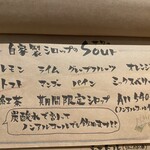 自家製シロップの Sour
レモン ライム グレープフルーツ オレンジ
トマト アンズ パイン ミックスベリー
紅茶 期間限定シロップ All 590
炭酸水で割って
ノンアルコールでも作れます!!